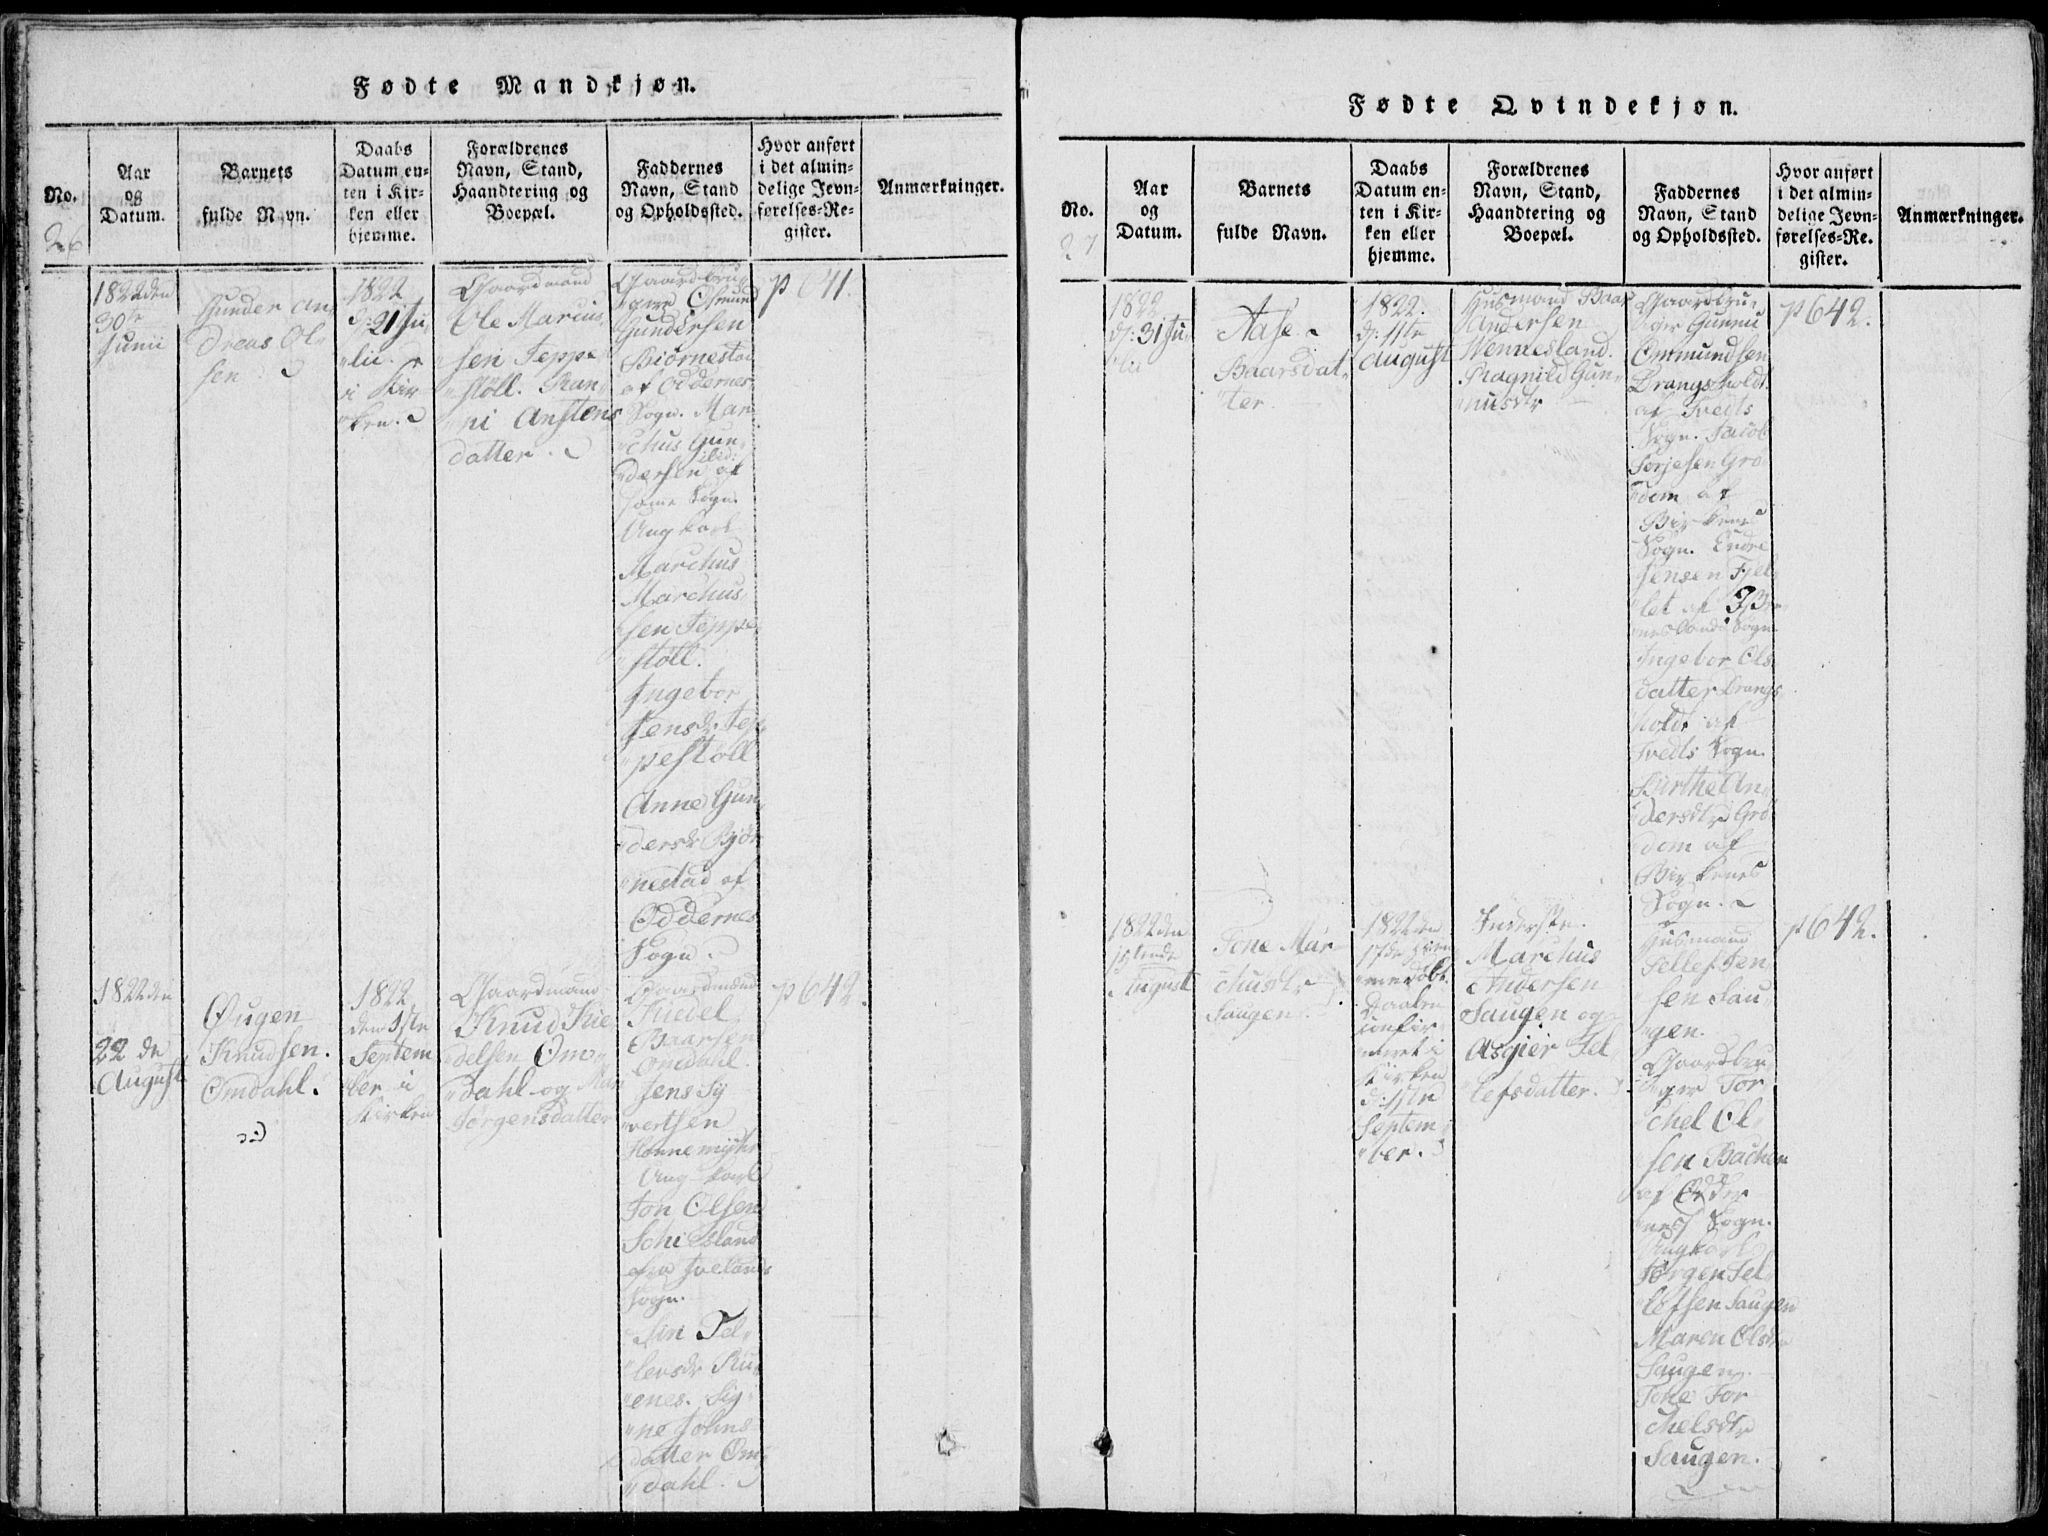 Fødte Mandkjøn.
No.
Aar
og
Datum.
Barnets
fulde Navn.
Daabs
Datum en-
ten i Kir-
ken eller
hjemme.
Forældrenes
Navn, Stand,
Haandtering og
Boepæl.
Faddernes
Navn, Stand
og Opholdssted.
Hvor anført
i det almin-
delige Jevn-
førelses-Re-
gister.
Anmærkninger.
26
1822 den
30te
Junii
Gunder An
dreas Ol
sen
1822
d: 21 Ju
lii
i Kir
ken.
Gaardmand
Ole Marcius
sen Teppe
støll. Ran
ni Anstens
datter.
Gaardbru
gere Osmund
Gundersen
Biørnestad
af Oddernes
Sogn. Mar
chus Gun
dersen ibid: af
same Sogn.
Ungkarl
Marchus
Marchus
sen Teppe
støll.
Ingebor
Jensdr Tep
pestøll
Anne Gun
dersdr Bjør
nestad af
Oddernes
Sogn.
p 641.
1822 den
22 de
August
Øugen
Knudsen
Omdahl.
1822
den 1ste
Septem
ber i
Kirken
Gaardmand
Knud
delsen Om
dahl og
Jørgensdatter
Gaardmænd
Baarsen
Omdahl.
Jens Sy
vertsen
Ung karl
Jon Olsen
Sogn.
Tel
levsdr
enes. Sig
ne Johns
datter Om
dahl.
p 642.
Fødte Qvindekjøn.
No.
Aar
og
Datum.
Barnets
fulde Navn.
Daabs
Datum en-
ten i Kir-
ken eller
hjemme.
Forældrenes
Navn, Stand,
Haandtering og
Boepæl.
Faddernes
Navn, Stand
og Opholdssted.
Hvor anført
i det almin-
delige Jevn-
førelses-Re-
gister.
Anmærkninger.
27
1822
d: 31 Ju
lii
Aase
Baarsdat
ter
1822.
d: 11te
August
Husmand Baar
Andersen
Wennesland.
Ragnild Gun
nusdtr
Gaardbru
ger Gunnu
Ommundsen
Drangsholdt
af Tvedts
Sogn. Jacob
Terjesen Gro
dem af
Birkenes
Sogn. Endre
Jensen Fjel
let af
Sogn.
Ingebor Ols
datter Drangs
holdt af
Tvedts Sogn.
Birthe An
dersdtr Gro
dem af
Birkenes
Sogn.
p 642.
1822 den
August
Tone Mar
chusdtr
Saugen.
1822 den
17de
Daaben
confir
meret i
Kirken
d: 1ste
Septem
ber.
Inderste
Marchus
Andersen
Saugen og
Asgier Tel
lefsdatter.
Husmand
Tellef Jen
sen Sau
gen.
Gaardbru
ger Tor
chel Ol
sen Bachen
af Odder
nes Sogn.
Ungkarl
Jørgen Tel
lefsen Saugen
Maren Olsdtr
Saugen.
Tone Tor
chelsdtr
Saugen.
p 642.